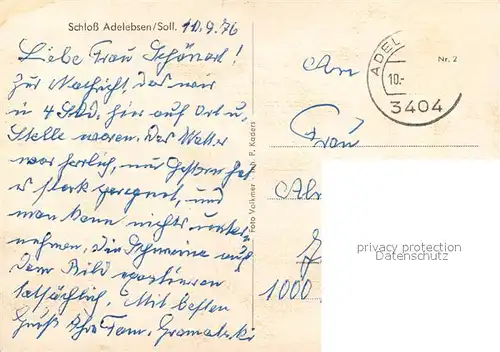 Schloß Adelebsen/Soll. 10.9.76
Liebe Frau Schönert!
Zur Nachricht das wir
in 4 Std, hier auf Ort u,
Stelle waren. Das Wetter
war herrlich, nur gestern hat
es stark geregnet, und
man kann nichts unter-
nehmen. Die Schweine auf
dem Bild existieren
tatsächlich. Mit besten
Gruß Ihre Fam.
Foto Volkmer
P. Koders
An
Frau
1000
ADEL
10.-
3404
Nr. 2
privacy protection
Datenschutz